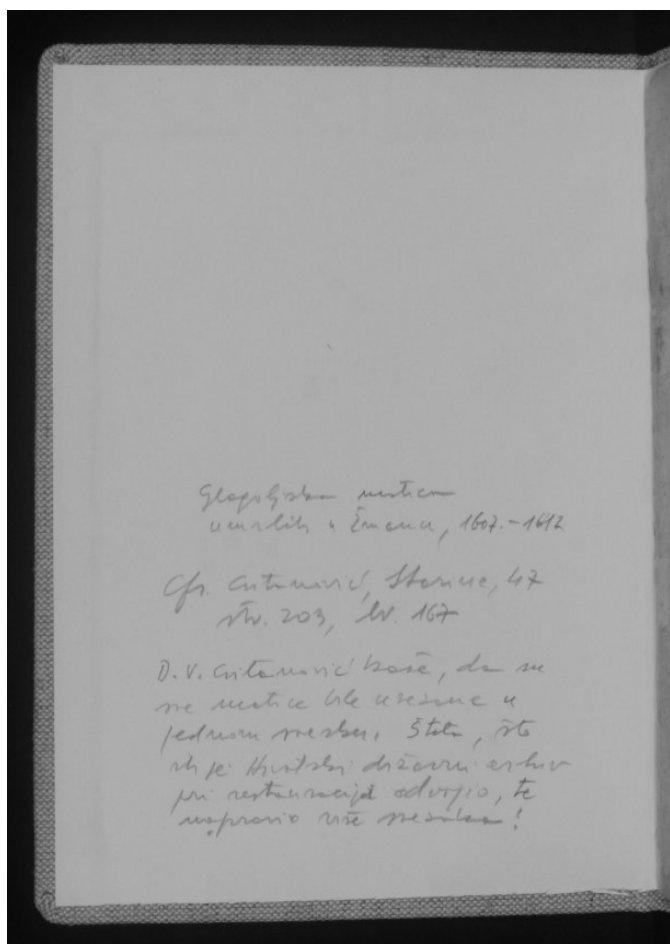 Glagoljska matica
umrlih u Žmanu, 1607.-1612
Cfr. Cvitanović, Starine, 47
str. 203, br. 167
D. V. Cvitanović kaže, da su
sve matice bile uvezane u
jednom svesku. Šteta, što
ih je Hrvatski državni arhiv
pri restauraciji odvojio, te
napravio više svezaka!